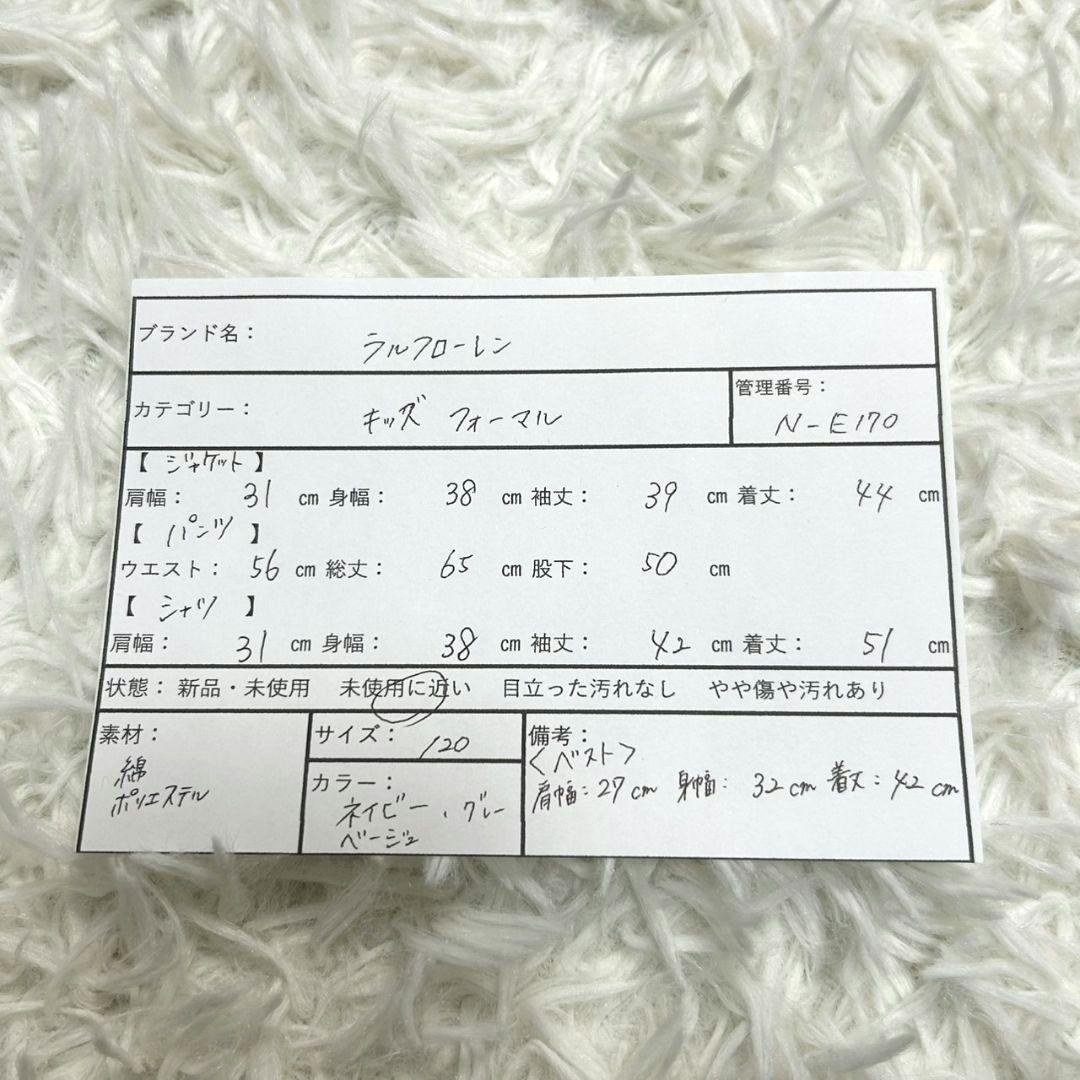 ブランド名： ラルフローレン
カテゴリー： キッズ フォーマル
管理番号：
N-E170
【 ジャケット 】
肩幅： 31 cm 身幅： 38 cm 袖丈： 39 cm 着丈： 44 cm
【 パンツ 】
ウエスト： 56 cm 総丈： 65 cm 股下： 50 cm
【 シャツ 】
肩幅： 31 cm 身幅： 38 cm 袖丈： 42 cm 着丈： 51 cm
状態： 新品・未使用 未使用に近い 目立った汚れなし やや傷や汚れあり
素材：
綿
ポリエステル
サイズ： 120
カラー：
ネイビー、グレー
ベージュ
備考：
〈ベスト〉
肩幅：27cm 身幅： 32cm 着丈：42cm